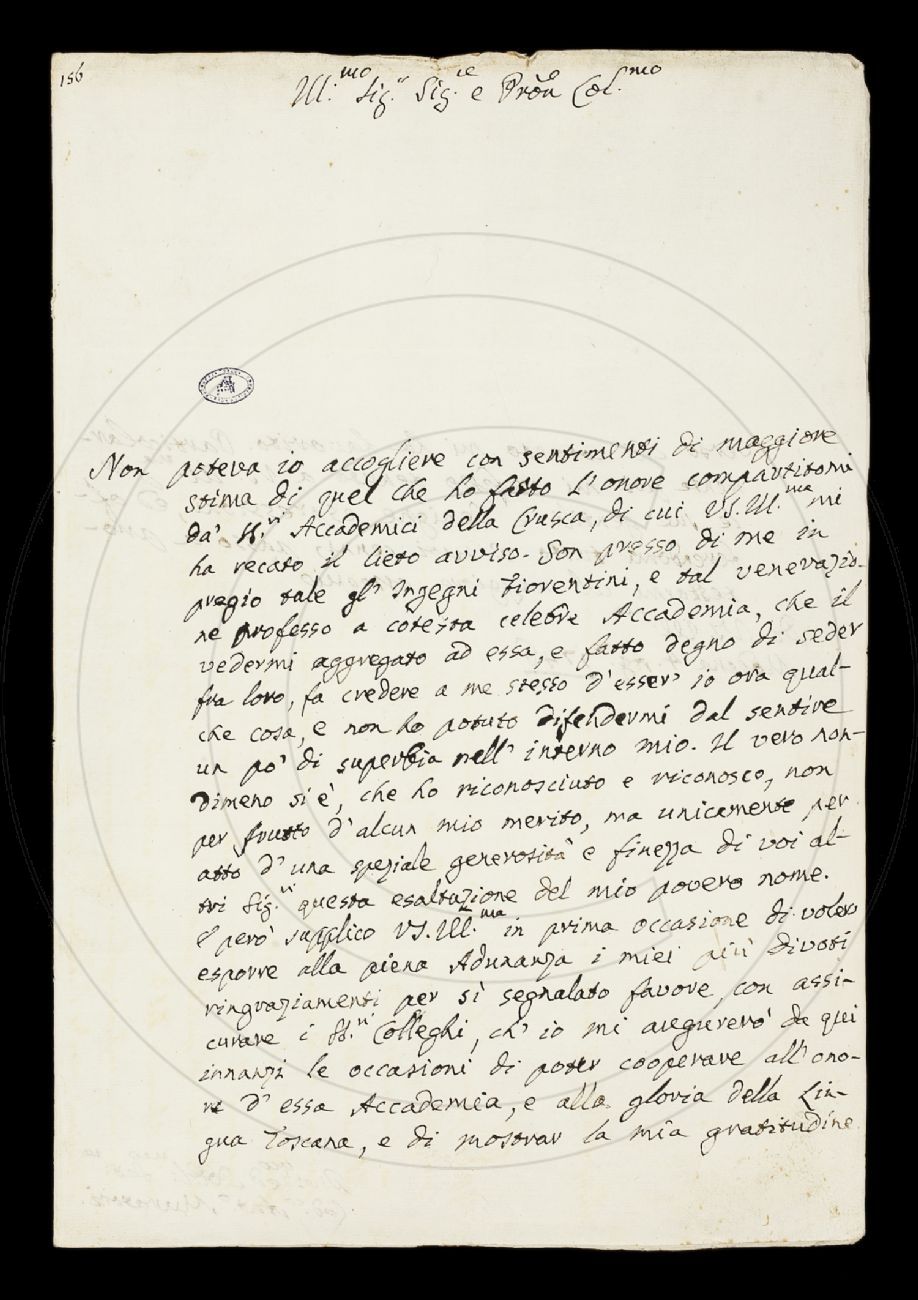 156
Ill.mo Sig.r Sig.re e Pròn Col.mo
Non poteva io accogliere con sentimenti di maggiore
stima di quel che ho fatto l'onore compartitomi
da' SS.ri Accademici della Crusca, di cui VS. Ill.ma mi
ha recato il lieto avviso. Son presso di me in
pregio tale gl' Ingegni Fiorentini, e tal venerazio-
ne professo a cotesta celebre Accademia, che il
vedermi aggregato ad essa, e fatto degno di seder
fra loro, fa credere a me stesso d'esser' io ora qual-
che cosa, e non ho potuto difendermi dal sentire
un po' di superbia nell' interno mio. Il vero non-
dimeno si è, che ho riconosciuto e riconosco, non
per frutto d'alcun mio merito, ma unicamente per
atto d'una speziale generosità e finezza di voi al-
tri Sig.ri questa esaltazione del mio povero nome.
E però supplico VS. Ill.ma in prima occasione di voler
esporre alla piena Adunanza i miei più divoti
ringraziamenti per sì segnalato favore, con assi-
curare i SS.ri Colleghi, ch' io mi augurerò da qui
innanzi le occasioni di poter cooperare all' ono-
re d' essa Accademia, e alla gloria della Lin-
gua Toscana, e di mostrar la mia gratitudine